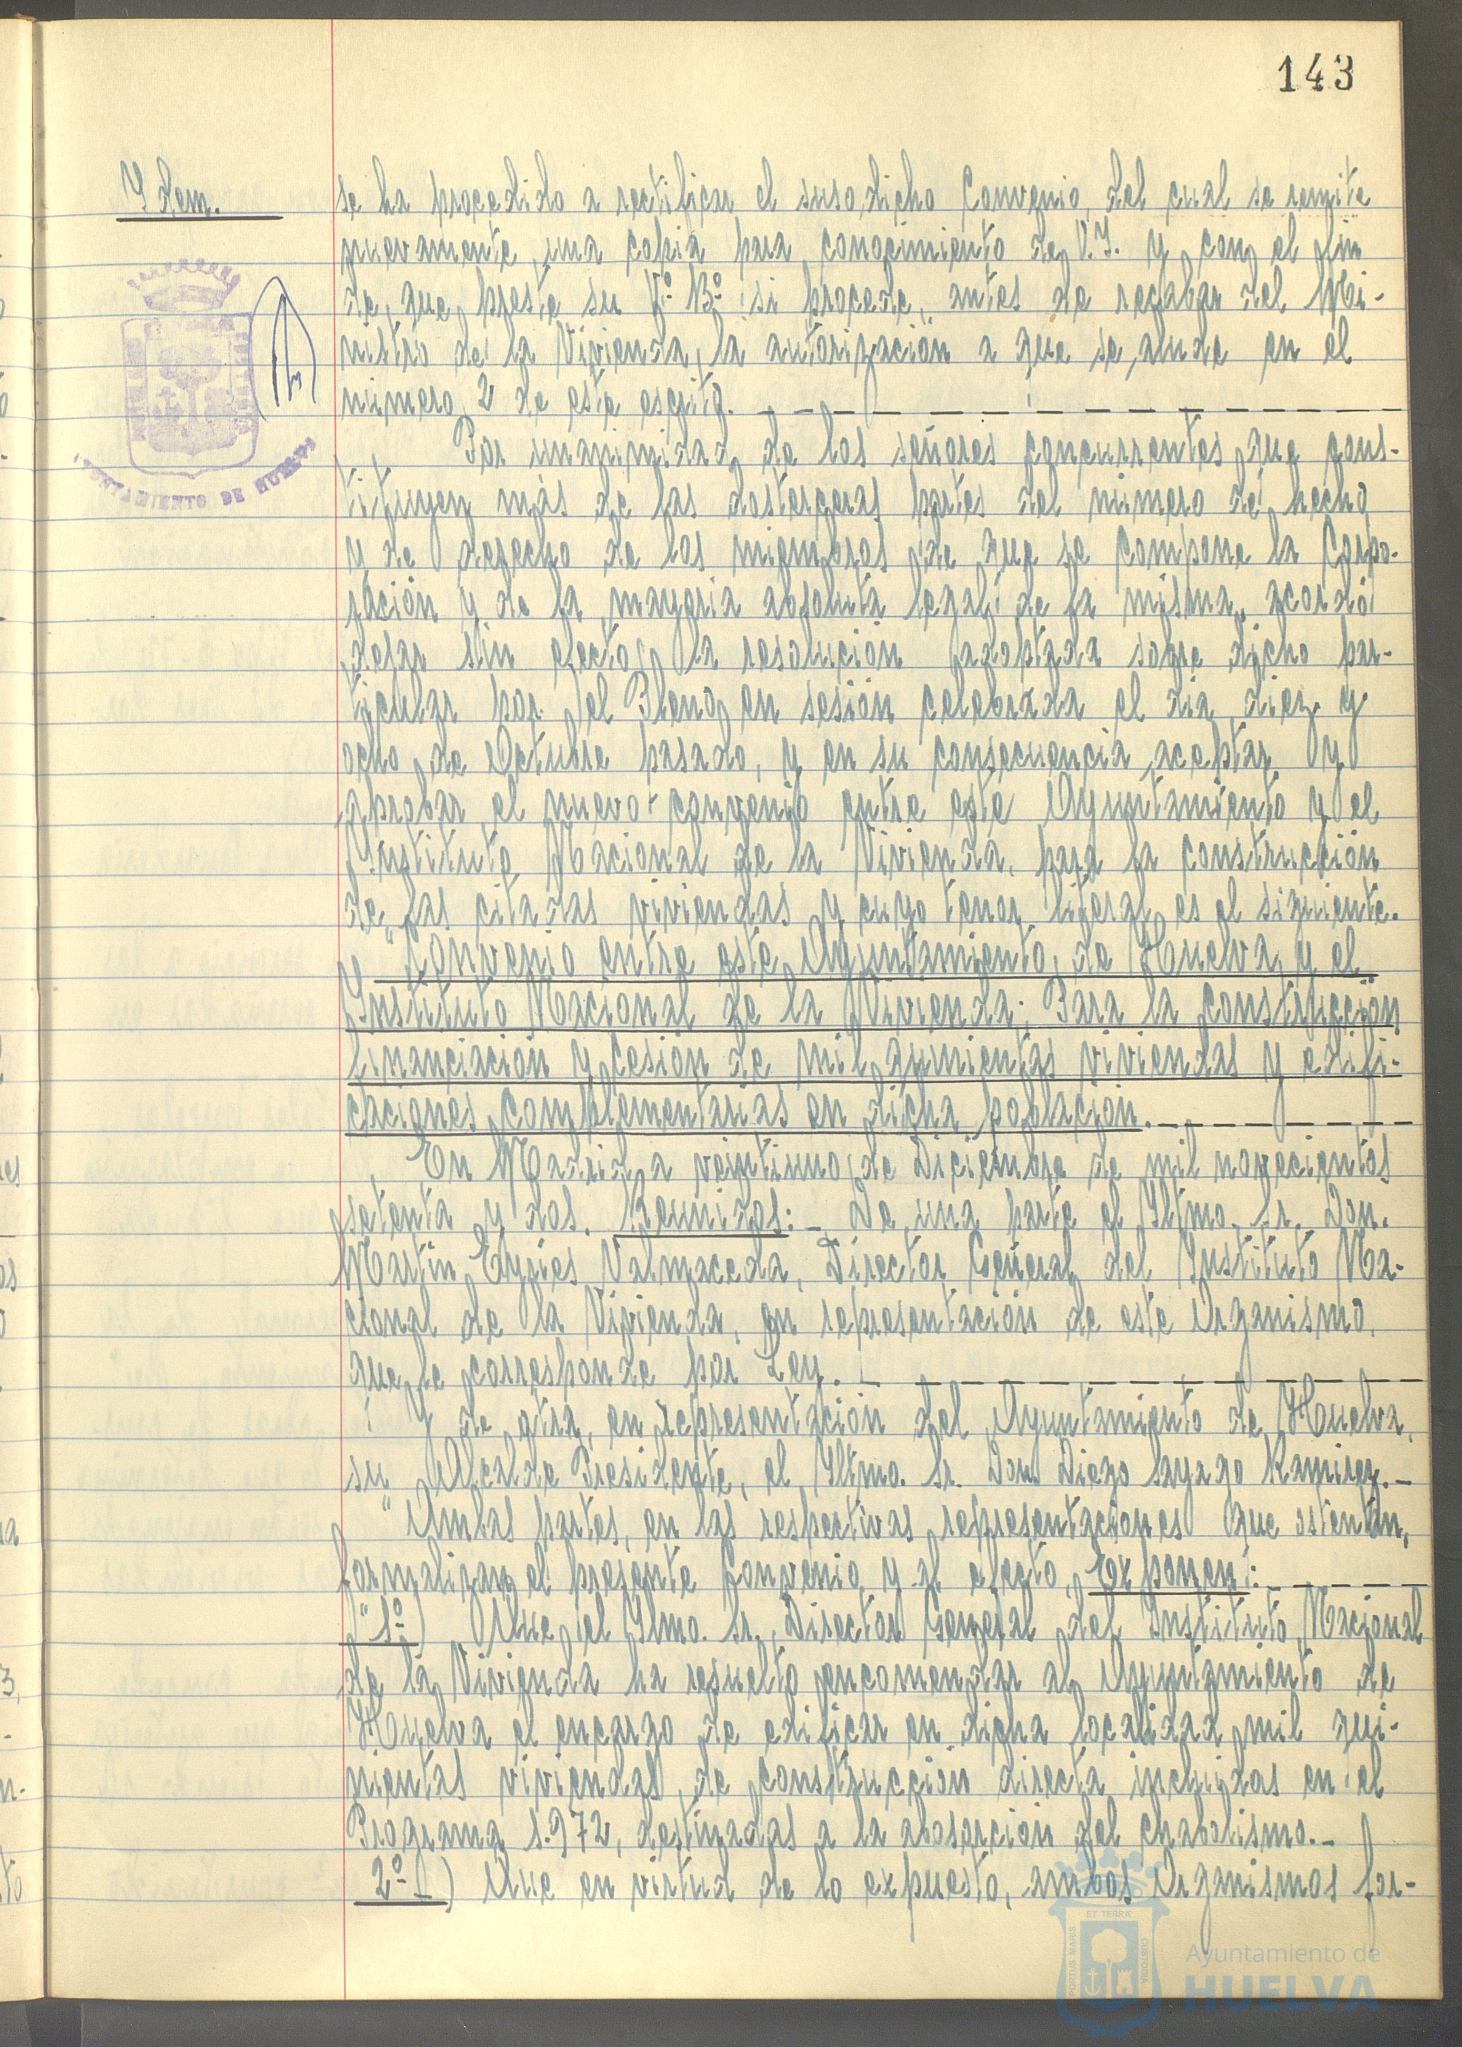 143
Ydem.
se ha procedido a rectificar el susodicho Convenio, del cual se remite
nuevamente, una copia para conocimiento de V.I. y con el fin
de, que preste su Vº Bº si procede, antes de recabar del Mi-
nistro de la Vivienda, la autorización a que se alude en el
número 2 de este escrito.
Por unanimidad de los señores concurrentes que cons-
tituyen más de las dosterceras partes del número de hecho
y de derecho de los miembros de que se compone la Corpo-
ración y de la mayoria absoluta legal de la misma, acordó
dejar sin efecto la resolución adoptada sobre dicho par-
ticular por el Pleno en sesión celebrada el dia diez y
ocho de Octubre pasado, y en su consecuencia aceptar y
aprobar el nuevo convenio entre este Ayuntamiento y el
Ynstituto Nacional de la Vivienda, para la construcción
de las citadas viviendas y cuyo tenor literal es el siguiente.
"Convenio entre este Ayuntamiento, de Huelva y el
Ynstituto Nacional de la Vivienda; Para la construcción
financiación y cesión de mil quinientas viviendas y edifi-
caciones complementarias en dicha población.
En Madrid a veintiuno de Diciembre de mil novecientos
setenta y dos. Reunidos: - De una parte el Yltmo. Sr. Don.
Martín Eyries Valmaceda, Director General del Ynstituto Na-
cional de la Vivienda, en representación de este Organismo,
que le corresponde por Ley.
Y de otra, en representación del Ayuntamiento de Huelva,
su Alcalde Presidente, el Yltmo. Sr. Don Diego Sayago Ramirez.-
"Ambas partes, en las respectivas representaciones que ostentan,
formalizan el presente Convenio y al efecto, Exponen:
"1º) Que el Ylmo. Sr. Director General del Ynstituto Nacional
de la Vivienda ha resuelto encomendar al Ayuntamiento de
Huelva el encargo de edificar en dicha localidad mil qui-
nientas viviendas, de construcción directa incluidas en el
Programa 1.972, destinadas a la absorción del chabolismo.-
2º) Que en virtud de lo expuesto, ambos Organismos for-
AYUNTAMIENTO DE HUELVA
PORTUS MARIS
ET TERRÆ
CUSTODIA
Ayuntamiento de
HUELVA